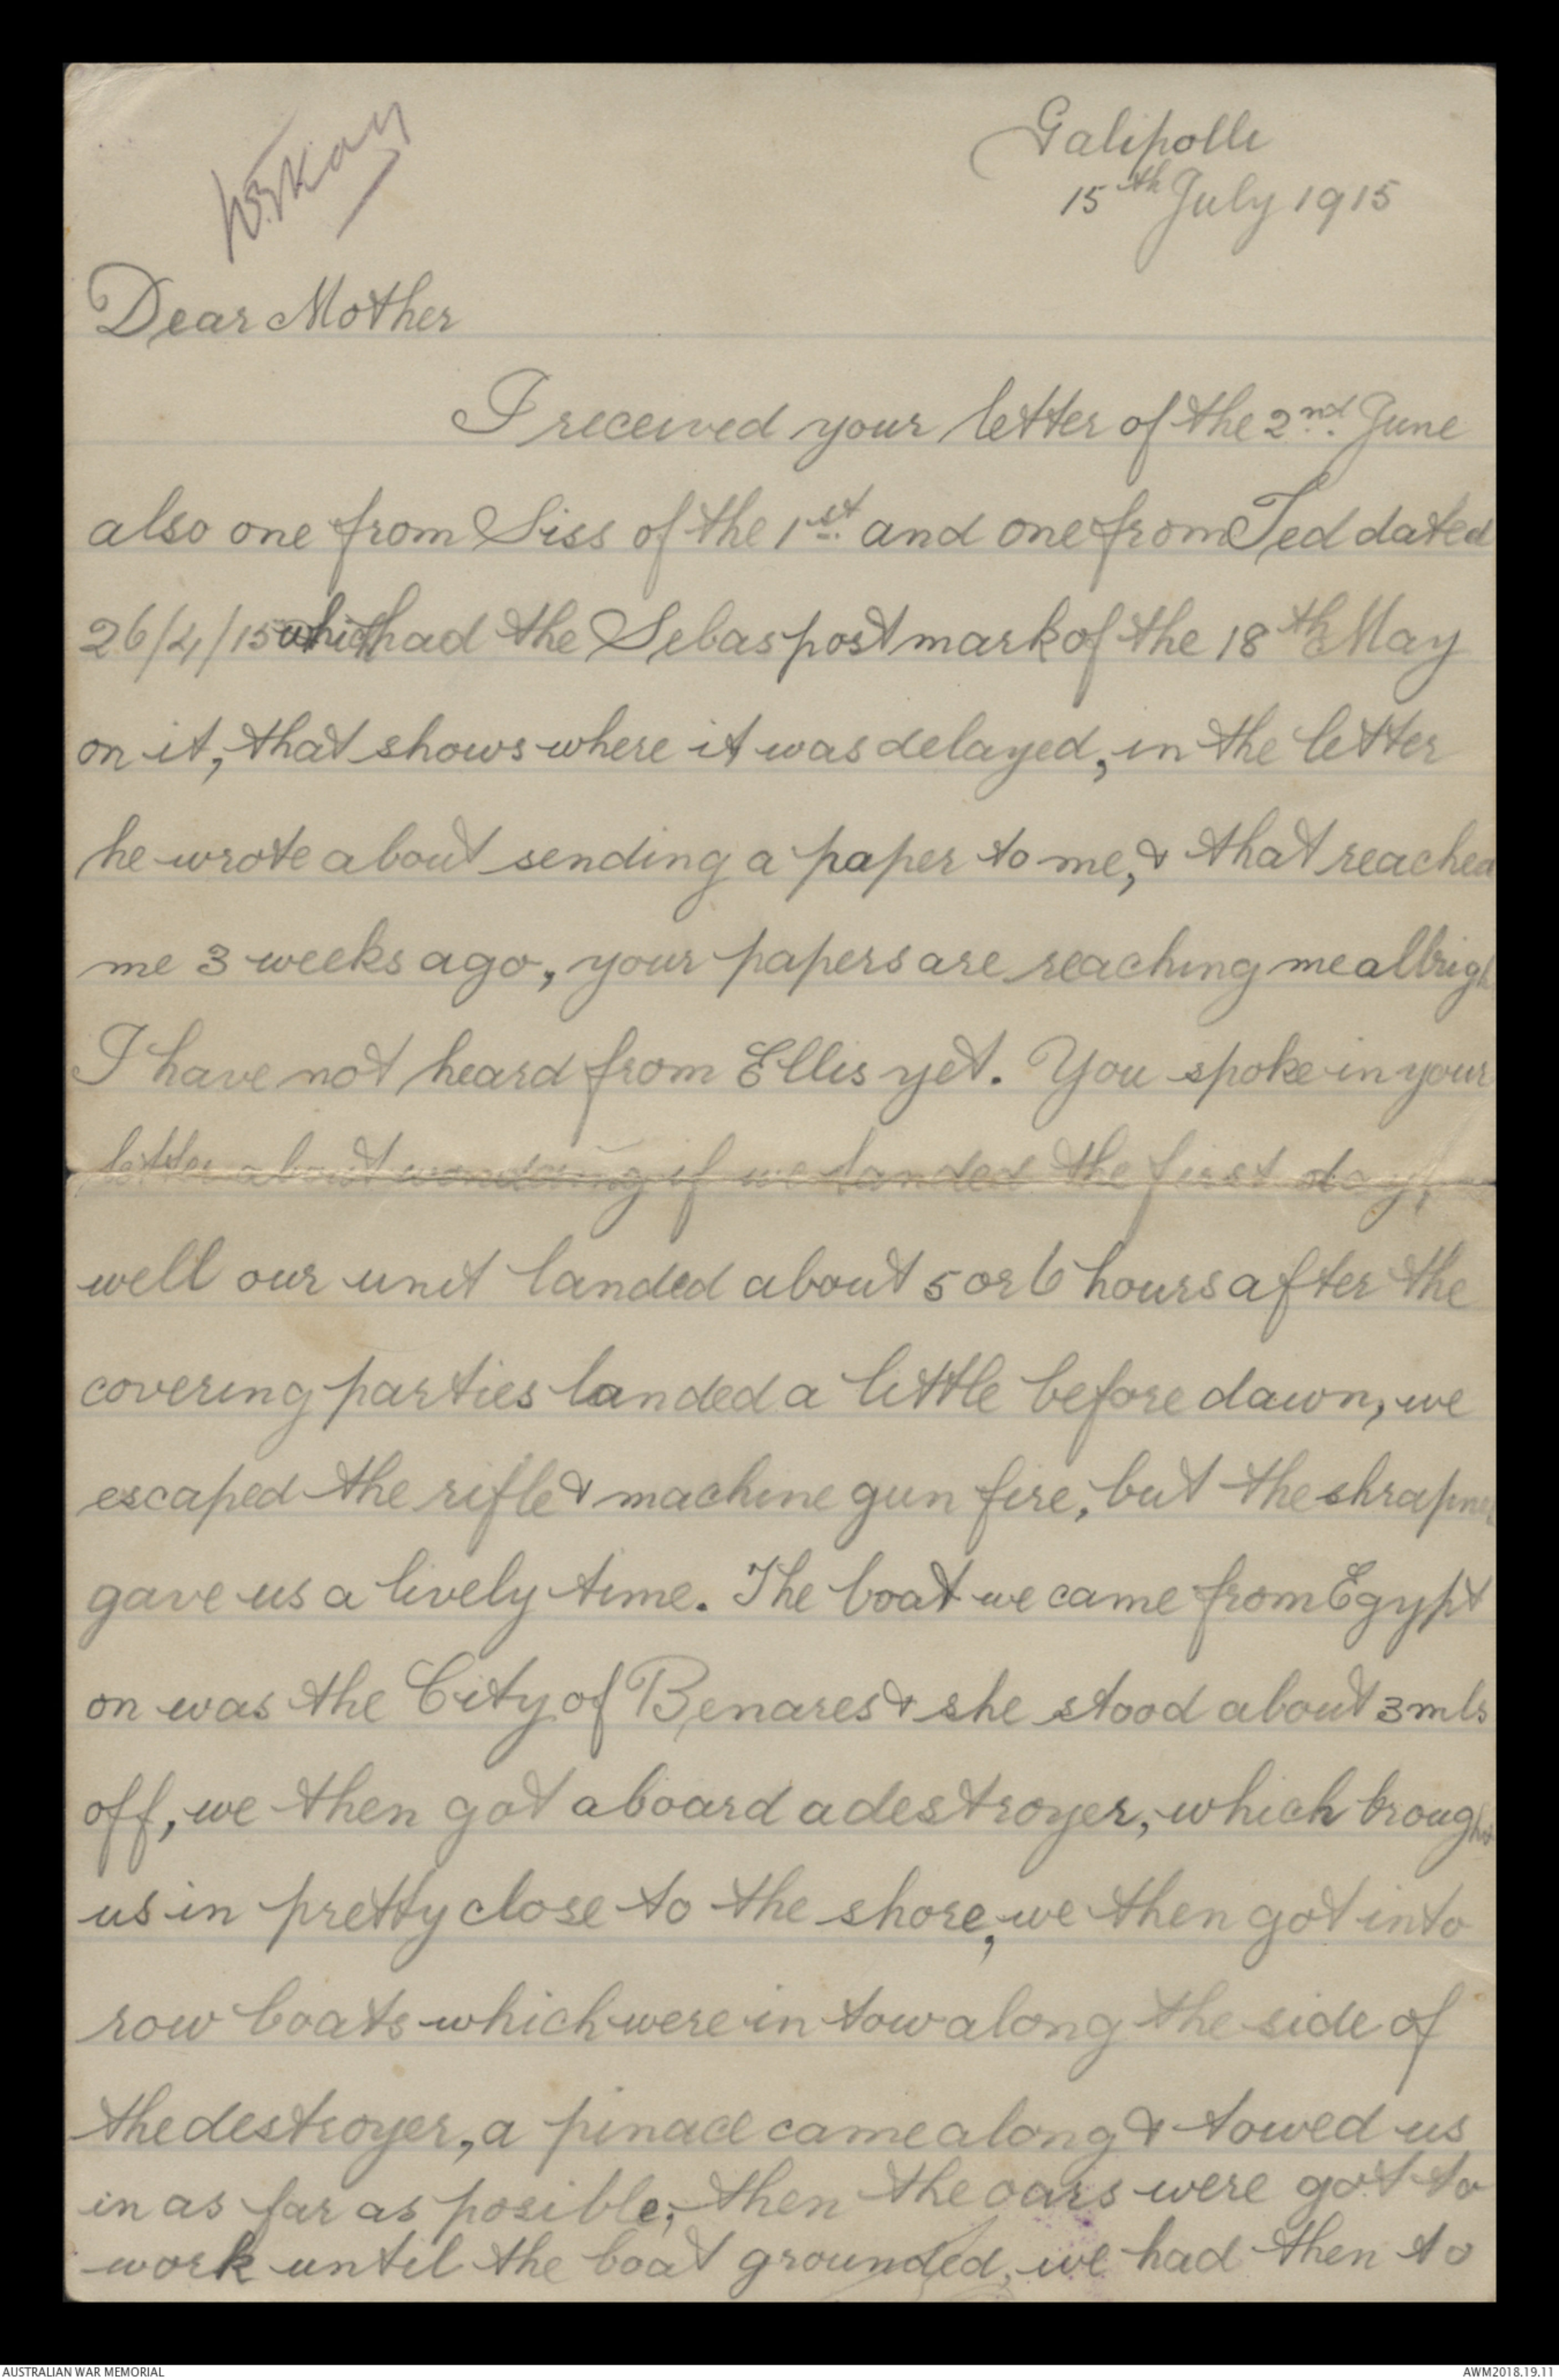 Galipolli
15th July 1915
Dear Mother
I received your letter of the 2nd. June
also one from Siss of the 1st. and one from Ted dated
26/4/15 which had the Sebas post mark of the 18th May
on it, that shows where it was delayed, in the letter
he wrote about sending a paper to me, & that reached
me 3 weeks ago, your papers are reaching me allrigh
I have not heard from Ellis yet. You spoke in your
letter about wondering if we landed the first day,
well our unit landed about 5 or 6 hours after the
covering parties landed a little before dawn, we
escaped the rifle & machine gun fire, but the shrapnel
gave us a lively time. The boat we came from Egypt
on was the City of Benares & she stood about 3 mls
off, we then got aboard a destroyer, which brought
us in pretty close to the shore, we then got into
row boats which were in tow along the side of
the destroyer, a pinace came along & towed us
in as far as posible, then the oars were got to
work until the boat grounded, we had then to
AUSTRALIAN WAR MEMORIAL
AWM2018.19.11